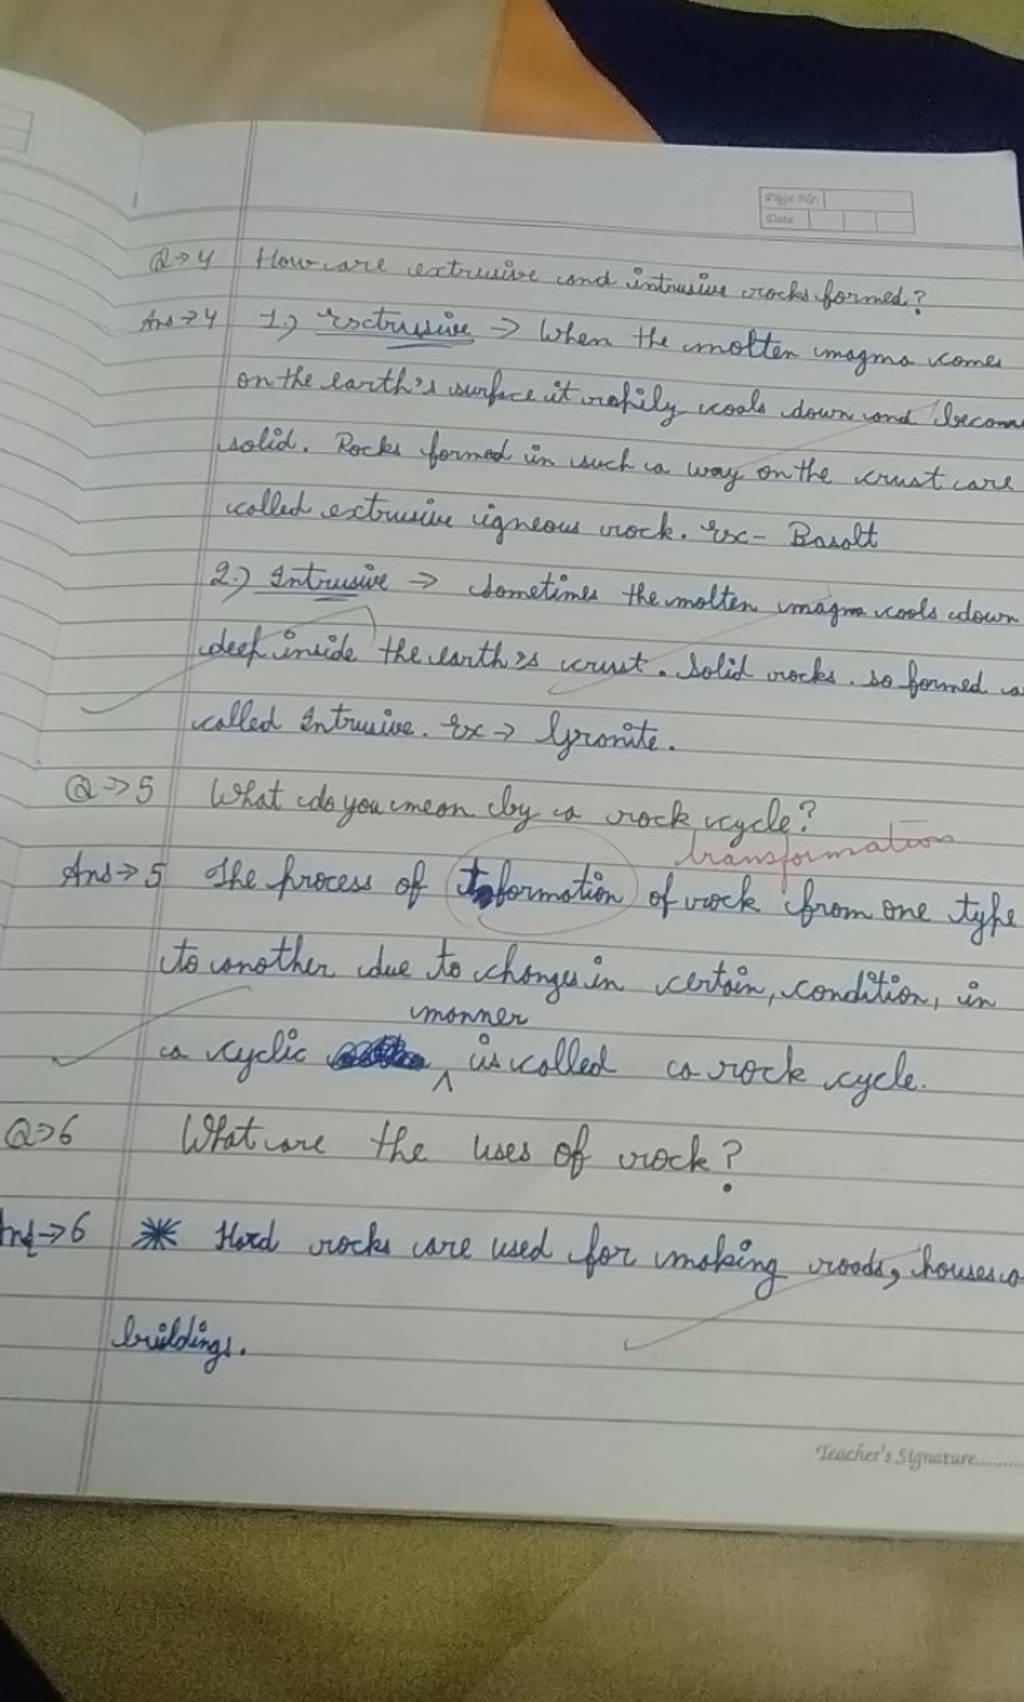 Page No.
Date
Q→4 How are extrusive and intrusive rocks formed?
Ans→4 1.) Extrusive → When the molten magma comes
on the earth's surface it rapily cools down and become
solid. Rocks formed in such a way on the crust are
called extrusive igneous rock. Ex- Basalt
2.) Intrusive → Sometimes the molten magma cools down
deep inside the earth's crust. Solid rocks so formed a
called Intrusive. Ex → Granite.
Q→5 What do you mean by a rock cycle?
transformation
Ans→5 The process of formation of rock from one type
to another due to changes in certain, condition, in
manner
a cyclic ^ is called a rock cycle.
Q→6 What are the uses of rock?
Ans→6 * Hard rocks are used for making roads, houses a
buildings.
Teacher's Signature..........